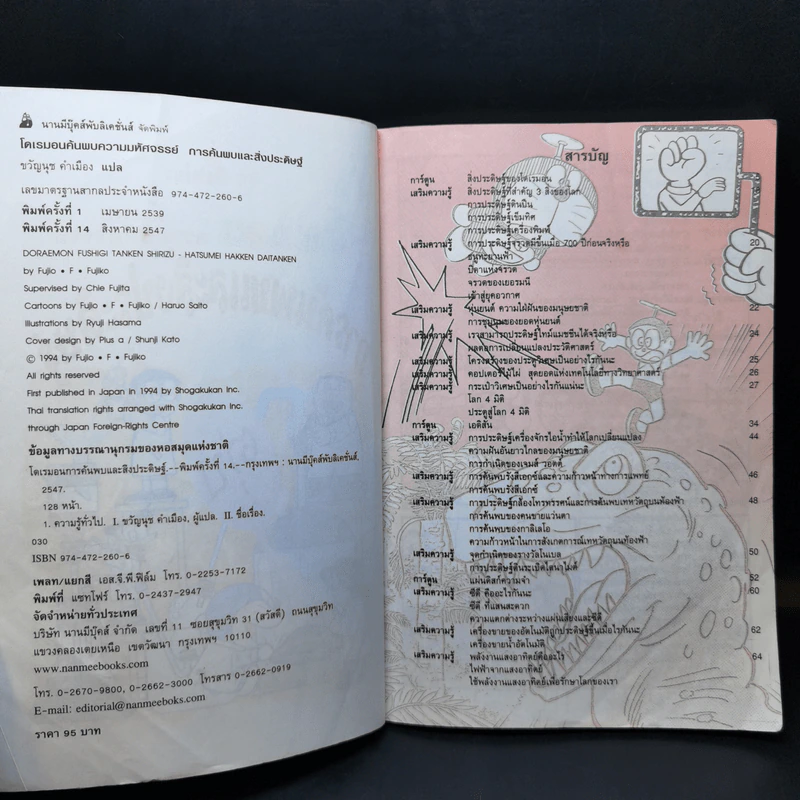 นานมีบุ๊คส์พับลิเคชั่นส์ จัดพิมพ์
โดเรมอนค้นพบความมหัศจรรย์ การค้นพบและสิ่งประดิษฐ์
ขวัญนุช คำเมือง แปล
เลขมาตรฐานสากลประจำหนังสือ 974-472-260-6
พิมพ์ครั้งที่ 1 เมษายน 2539
พิมพ์ครั้งที่ 14 สิงหาคม 2547
DORAEMON FUSHIGI TANKEN SHIRIZU - HATSUMEI HAKKEN DAITANKEN
by Fujio • F • Fujiko
Supervised by Chie Fujita
Cartoons by Fujio • F • Fujiko / Haruo Saito
Illustrations by Ryuji Hasama
Cover design by Plus a / Shunji Kato
© 1994 by Fujio • F • Fujiko
All rights reserved
First published in Japan in 1994 by Shogakukan Inc.
Thai translation rights arranged with Shogakukan Inc.
through Japan Foreign-Rights Centre
ข้อมูลทางบรรณานุกรมของหอสมุดแห่งชาติ
โดเรมอนการค้นพบและสิ่งประดิษฐ์.--พิมพ์ครั้งที่ 14.--กรุงเทพฯ : นานมีบุ๊คส์พับลิเคชั่นส์,
2547.
128 หน้า.
1. ความรู้ทั่วไป. I. ขวัญนุช คำเมือง, ผู้แปล. II. ชื่อเรื่อง.
030
ISBN 974-472-260-6
เพลท/แยกสี เอส.จี.พี.ฟิล์ม โทร. 0-2253-7172
พิมพ์ที่ แซทโฟร์ โทร. 0-2437-2947
จัดจำหน่ายทั่วประเทศ
บริษัท นานมีบุ๊คส์ จำกัด เลขที่ 11 ซอยสุขุมวิท 31 (สวัสดี) ถนนสุขุมวิท
แขวงคลองเตยเหนือ เขตวัฒนา กรุงเทพฯ 10110
www.nanmeebooks.com
โทร. 0-2670-9800, 0-2662-3000 โทรสาร 0-2662-0919
E-mail: editorial@nanmeeboks.com
ราคา 95 บาท
สารบัญ
การ์ตูน สิ่งประดิษฐ์ของโดเรมอน
เสริมความรู้ สิ่งประดิษฐ์ที่สำคัญ 3 สิ่งของโลก
การประดิษฐ์ดินปืน
การประดิษฐ์เข็มทิศ
การประดิษฐ์เครื่องพิมพ์
เสริมความรู้ การประดิษฐ์จรวดมีขึ้นเมื่อ 700 ปีก่อนจริงหรือ 20
ธนูทะยานฟ้า
ปีกาแห่งจรวด
จรวดของเยอรมนี
เข้าสู่ยุคอวกาศ
เสริมความรู้ หุ่นยนต์ ความใฝ่ฝันของมนุษยชาติ 22
การชุมนุมของยอดหุ่นยนต์
เสริมความรู้ เราสามารถประดิษฐ์ไทม์แมชชีนได้จริงหรือ 24
ผลต่อการเปลี่ยนแปลงประวัติศาสตร์
เสริมความรู้ โครงสร้างของประตูวิเศษเป็นอย่างไรกันนะ 25
เสริมความรู้ คอปเตอร์ไม้ไผ่ สุดยอดแห่งเทคโนโลยีทางวิทยาศาสตร์ 26
เสริมความรู้ กระเป๋าวิเศษเป็นอย่างไรกันแน่นะ 27
โลก 4 มิติ
ประตูสู่โลก 4 มิติ
การ์ตูน เอดิสัน 34
เสริมความรู้ การประดิษฐ์เครื่องจักรไอน้ำทำให้โลกเปลี่ยนแปลง 44
ความฝันอันยาวไกลของมนุษยชาติ
การกำเนิดของเจมส์ วอตต์
เสริมความรู้ การค้นพบรังสีเอกซ์และความก้าวหน้าทางการแพทย์ 46
การค้นพบรังสีเอกซ์
เสริมความรู้ การประดิษฐ์กล้องโทรทรรศน์และการค้นพบเทหวัตถุบนท้องฟ้า 48
การค้นพบของคนขายแว่นตา
การค้นพบของกาลิเลโอ
ความก้าวหน้าในการสังเกตการณ์เทหวัตถุบนท้องฟ้า
เสริมความรู้ จุดกำเนิดของรางวัลโนเบล 50
การประดิษฐ์ดินระเบิดไดนาไมต์
การ์ตูน แผ่นดิสก์ความจำ 52
เสริมความรู้ ซีดี คืออะไรกันนะ 60
ซีดี ที่แสนสะดวก
ความแตกต่างระหว่างแผ่นเสียงและซีดี
เสริมความรู้ เครื่องขายของอัตโนมัติถูกประดิษฐ์ขึ้นเมื่อไรกันนะ 62
เครื่องขายน้ำอัตโนมัติ
เสริมความรู้ พลังงานแสงอาทิตย์คืออะไร 64
ไฟฟ้าจากแสงอาทิตย์
ใช้พลังงานแสงอาทิตย์เพื่อรักษาโลกของเรา